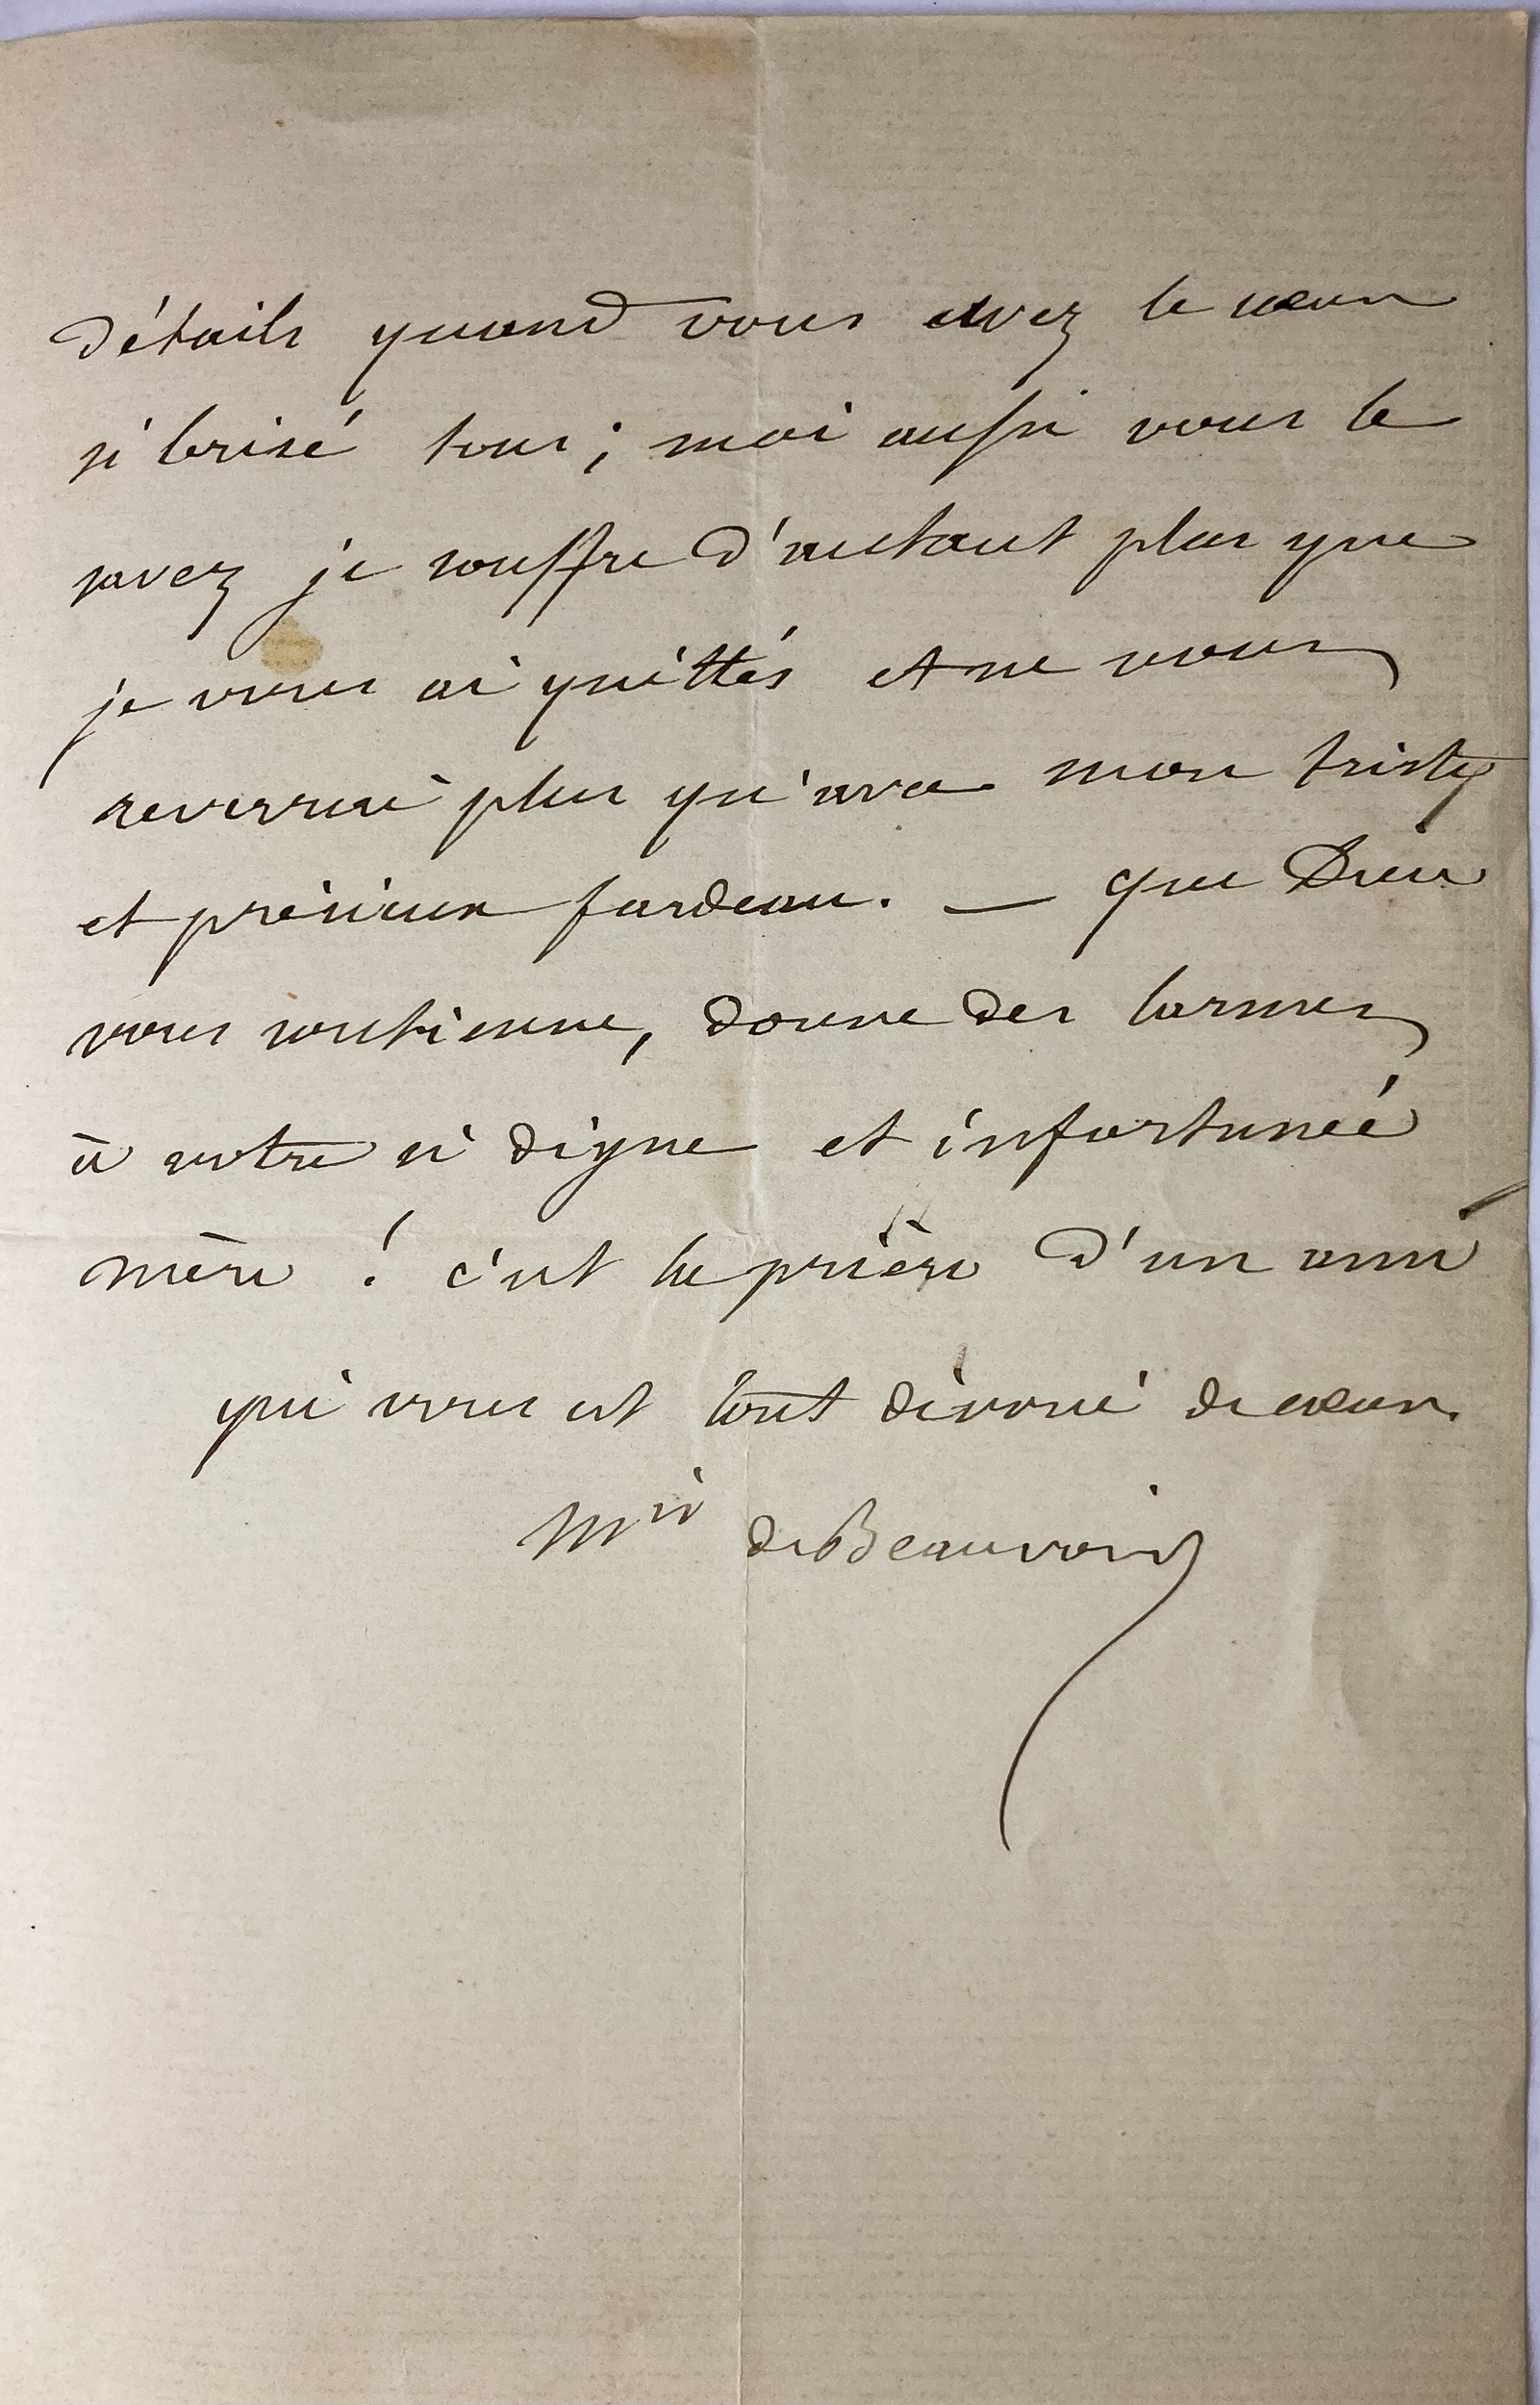 détails quand vous avez le cœur
si brisé tous ; moi aussi vous le
savez je souffre d'autant plus que
je vous ai quittés et ne vous
reverrai plus qu'avec mon triste
et précieux fardeau. — que Dieu
vous soutienne, donne des larmes
à votre si digne et infortunée
mère ! c'est la prière d'un ami
qui vous est tout dévoué de cœur.
Mis de Beauvoir